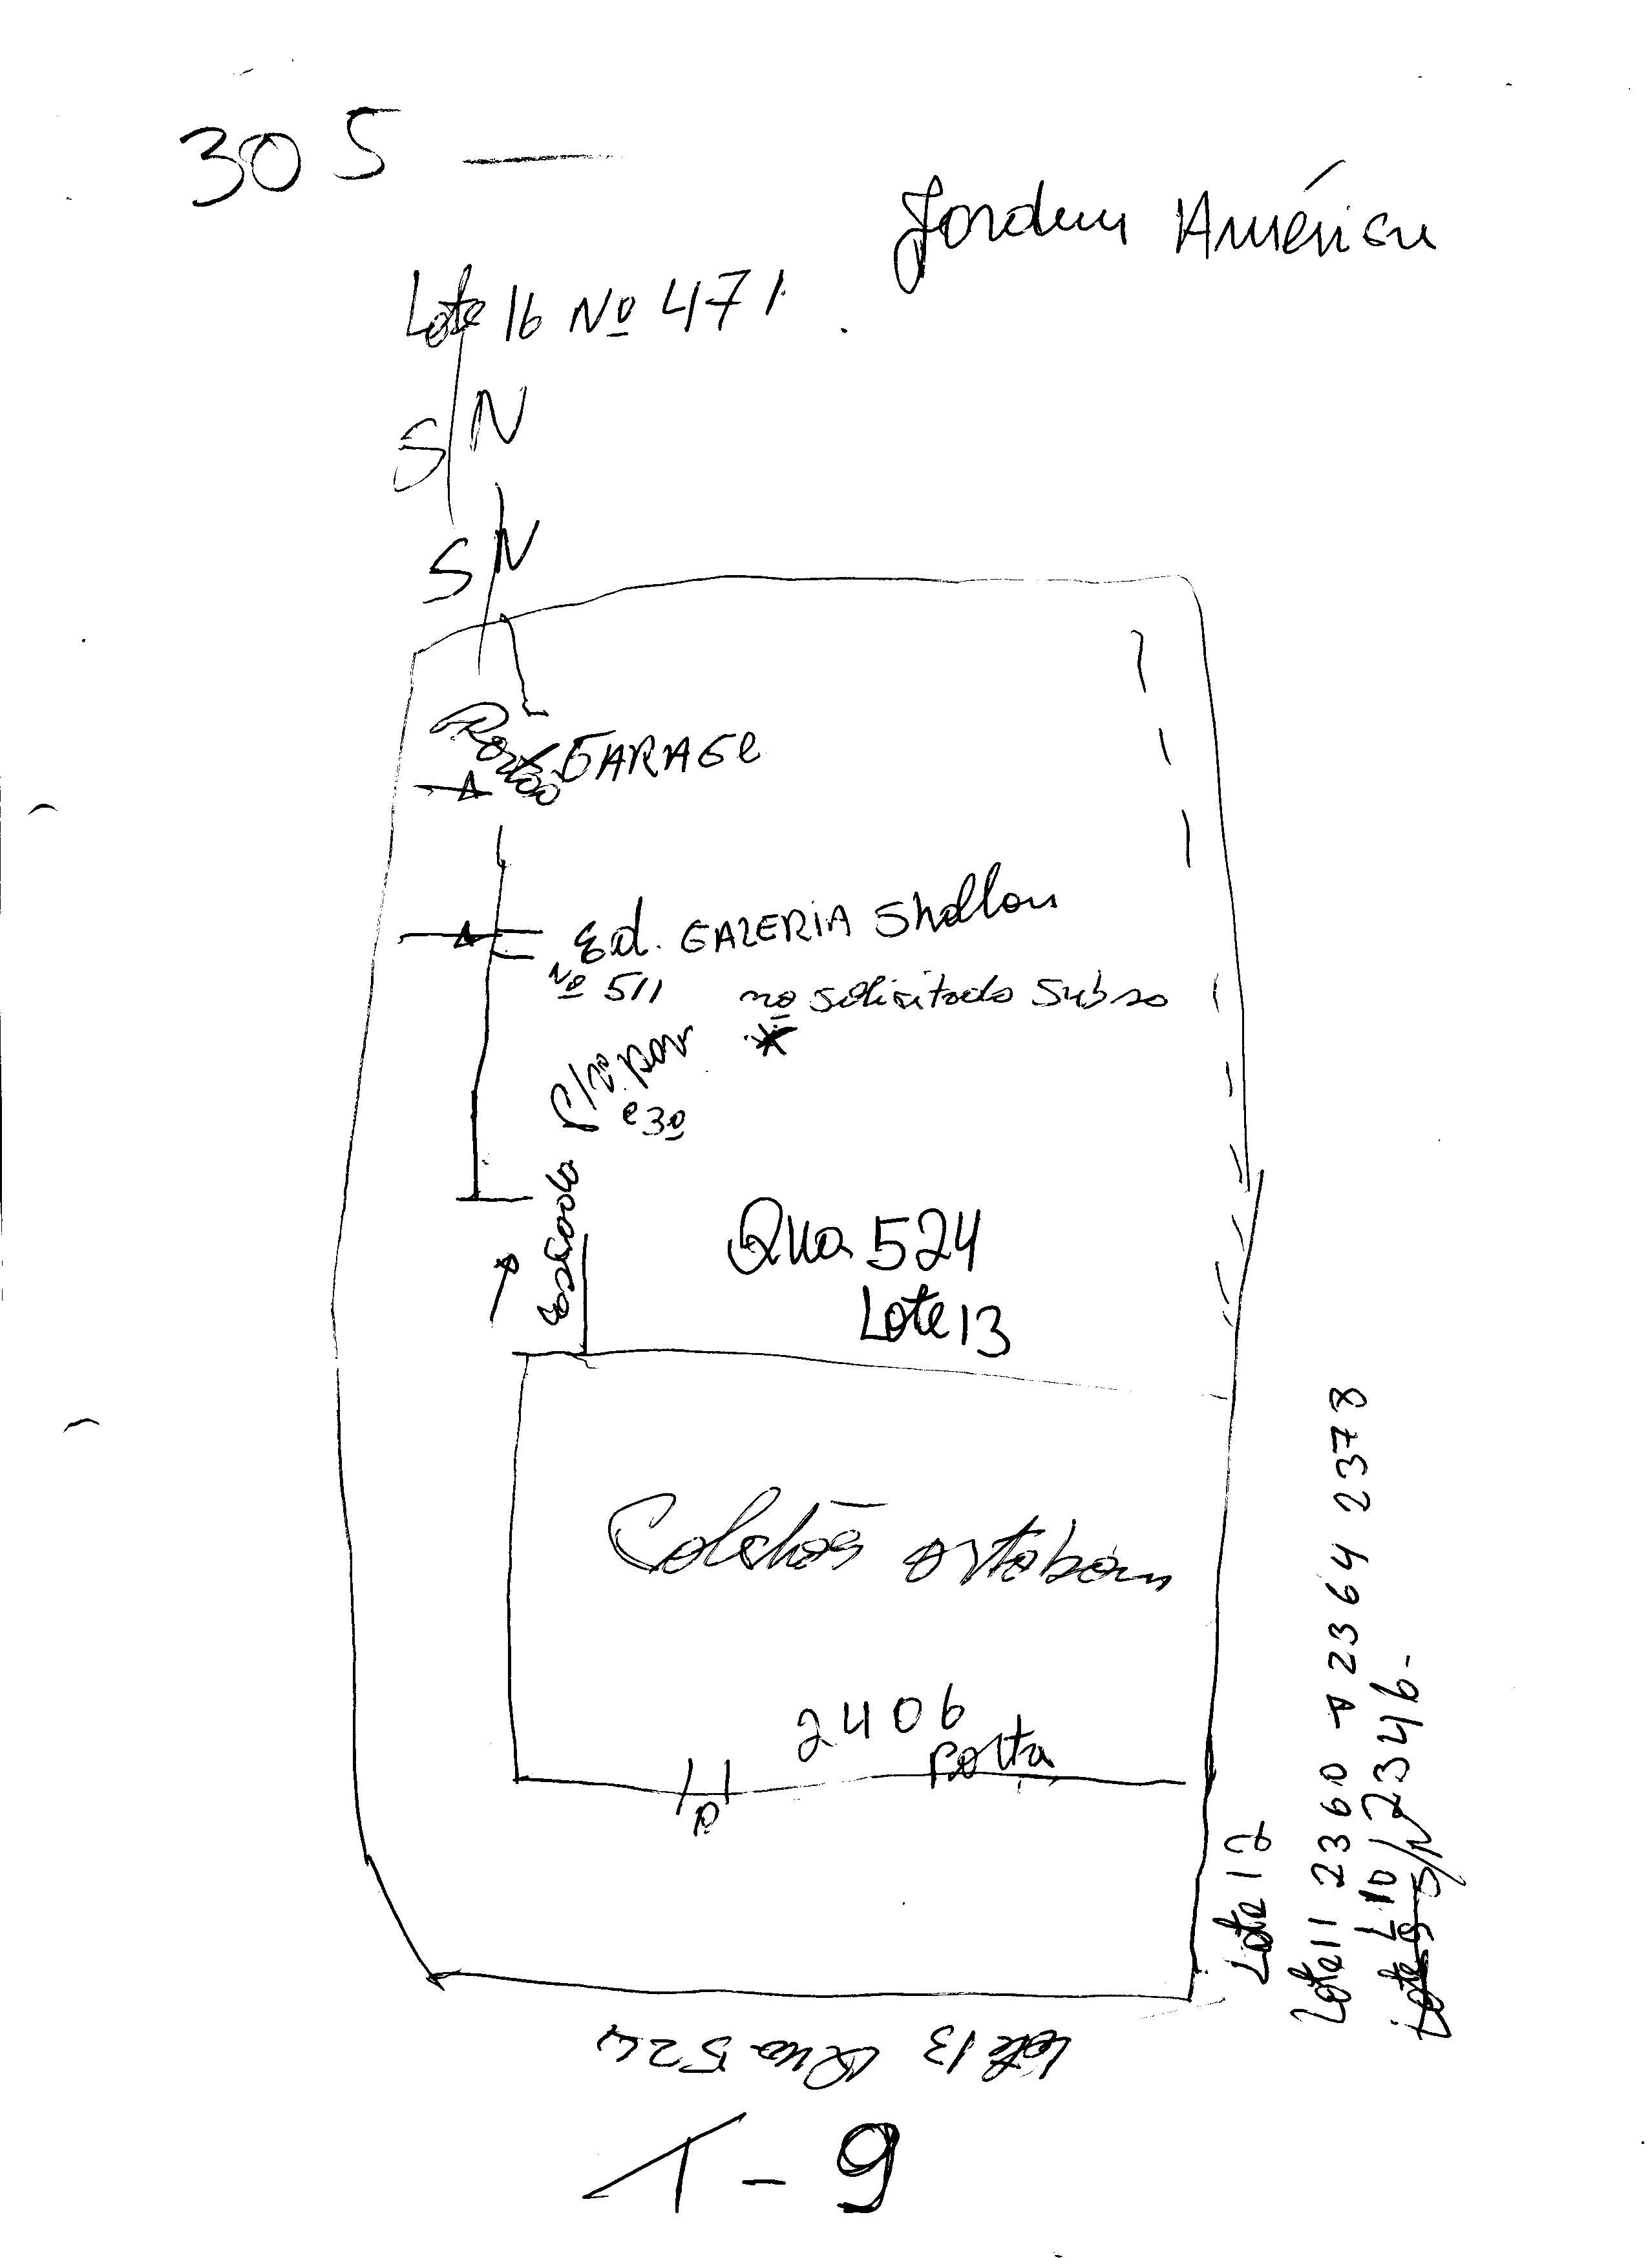 305 —
Jardem América
Lote 16 Nº 471
S/N
S/N
Portão GARAGE
Ed. GALERIA Shallon
Nº 511
no solicitado Subso
*
P/2º Pav
e 3º
escada
Qua 524
Lote 13
Colchões ortobom
2406
Porta
P
Lote 12
Lote 11 2360 → 2364 2378
L 10 / 2346 -
Lote 9 S/N
Lote 13 Qua 524
T - 9